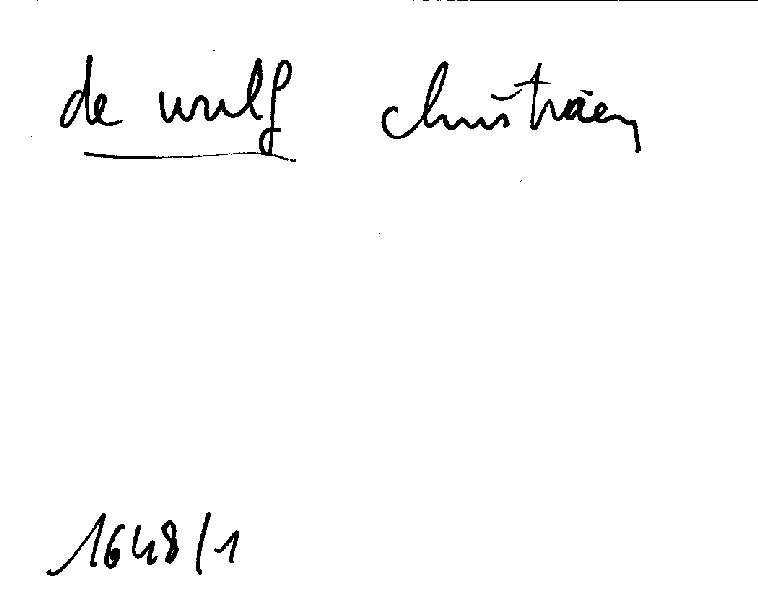 de wulf christiaen
1648/1